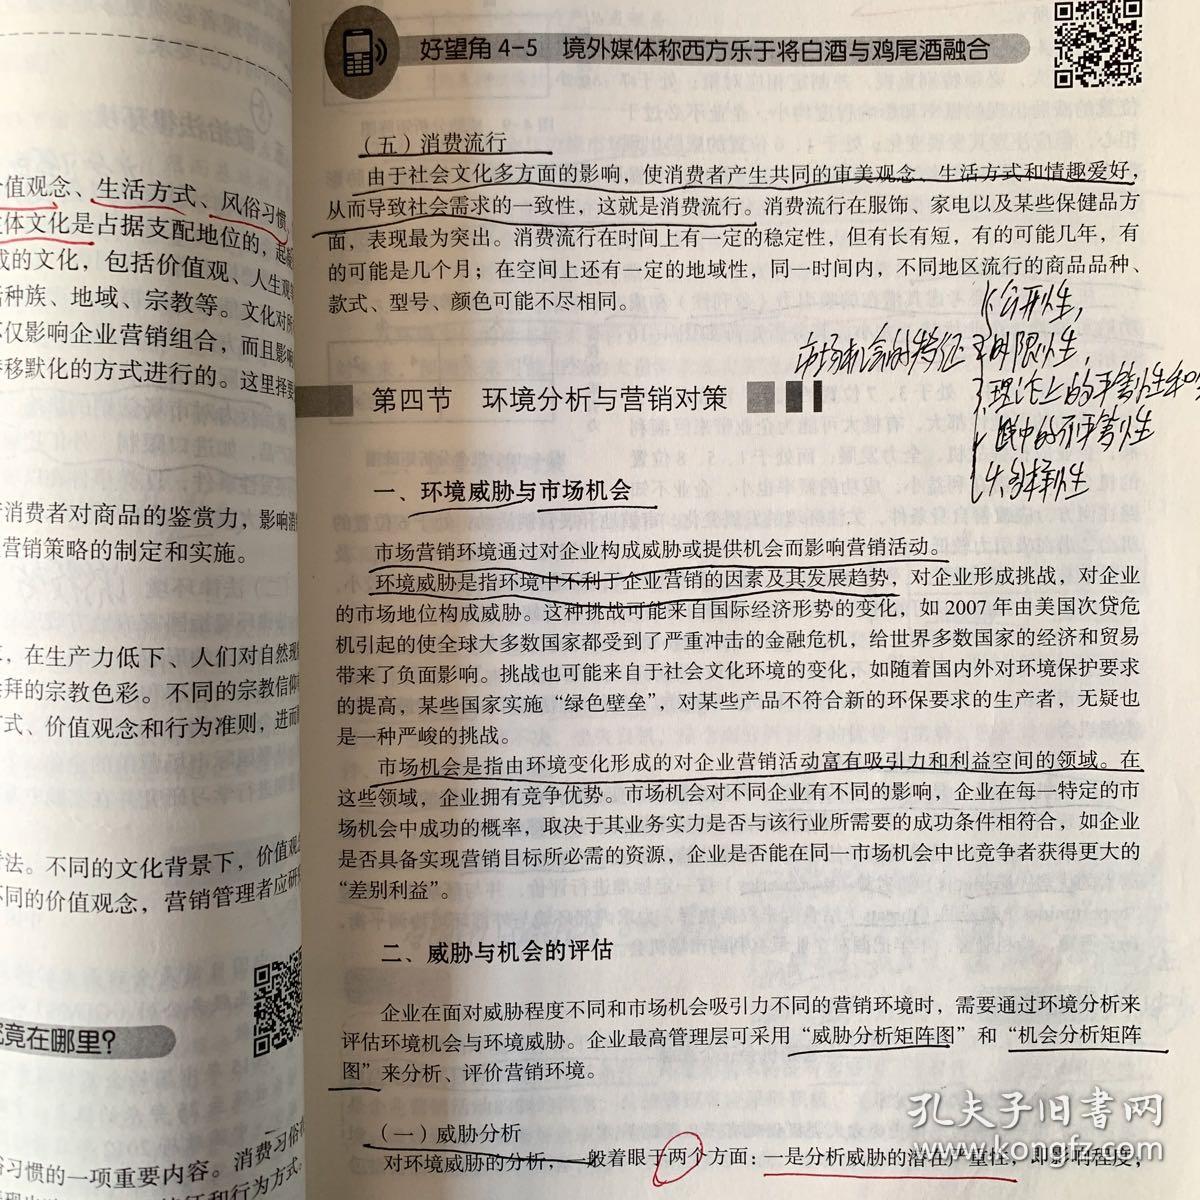 值观念、生活方式、风俗习惯,
体文化是占据支配地位的，起凝
成的文化，包括价值观、人生观
种族、地域、宗教等。文化对所
仅影响企业营销组合，而且影响
移默化的方式进行的。这里择要
消费者对商品的鉴赏力，影响消
营销策略的制定和实施。
，在生产力低下、人们对自然现
拜的宗教色彩。不同的宗教信仰
式、价值观念和行为准则，进而
法。不同的文化背景下，价值观
不同的价值观念，营销管理者应研
竟在哪里？
习惯的一项重要内容。消费习俗
好望角 4-5 境外媒体称西方乐于将白酒与鸡尾酒融合
（五）消费流行
由于社会文化多方面的影响，使消费者产生共同的审美观念、生活方式和情趣爱好，
从而导致社会需求的一致性，这就是消费流行。消费流行在服饰、家电以及某些保健品方
面，表现最为突出。消费流行在时间上有一定的稳定性，但有长有短，有的可能几年，有
的可能是几个月；在空间上还有一定的地域性，同一时间内，不同地区流行的商品品种、
款式、型号、颜色可能不尽相同。
市场机会的特征
公开性,
时限性,
理论上的平等性和实
践中的不平等性
选择性
第四节 环境分析与营销对策
一、环境威胁与市场机会
市场营销环境通过对企业构成威胁或提供机会而影响营销活动。
环境威胁是指环境中不利于企业营销的因素及其发展趋势，对企业形成挑战，对企业
的市场地位构成威胁。这种挑战可能来自国际经济形势的变化，如 2007 年由美国次贷危
机引起的使全球大多数国家都受到了严重冲击的金融危机，给世界多数国家的经济和贸易
带来了负面影响。挑战也可能来自于社会文化环境的变化，如随着国内外对环境保护要求
的提高，某些国家实施“绿色壁垒”，对某些产品不符合新的环保要求的生产者，无疑也
是一种严峻的挑战。
市场机会是指由环境变化形成的对企业营销活动富有吸引力和利益空间的领域。在
这些领域，企业拥有竞争优势。市场机会对不同企业有不同的影响，企业在每一特定的市
场机会中成功的概率，取决于其业务实力是否与该行业所需要的成功条件相符合，如企业
是否具备实现营销目标所必需的资源，企业是否能在同一市场机会中比竞争者获得更大的
“差别利益”。
二、威胁与机会的评估
企业在面对威胁程度不同和市场机会吸引力不同的营销环境时，需要通过环境分析来
评估环境机会与环境威胁。企业最高管理层可采用“威胁分析矩阵图”和“机会分析矩阵
图”来分析、评价营销环境。
（一）威胁分析
对环境威胁的分析，一般着眼于两个方面：一是分析威胁的潜在严重性，即影响程度，
孔夫子旧书网
www.kongfz.com